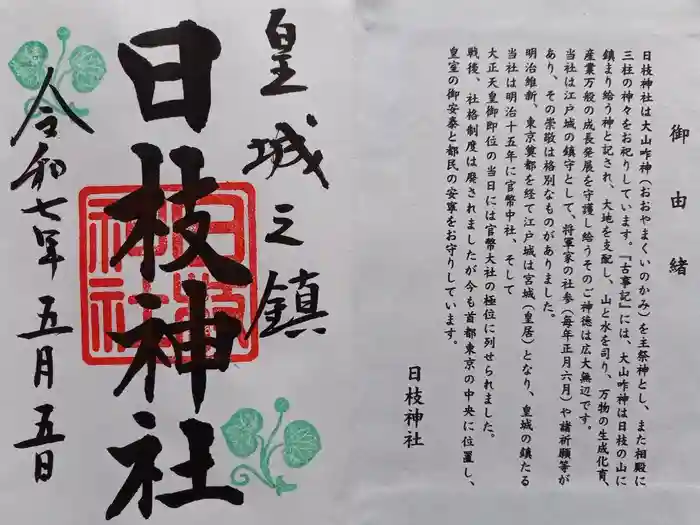 皇城之鎮
日枝神社
日枝神社
令和七年五月五日
御由緒
日枝神社は大山咋神（おおやまくいのかみ）を主祭神とし、また相殿に
三柱の神々をお祀りしています。『古事記』には、大山咋神は日枝の山に
鎮まり給う神と記され、大地を支配し、山と水を司り、万物の生成化育、
産業万般の成長発展を守護し給うそのご神徳は広大無辺です。
当社は江戸城の鎮守として、将軍家の社参（毎年正月六月）や諸祈願等が
あり、その崇敬は格別なものがありました。
明治維新、東京奠都を経て江戸城は宮城（皇居）となり、皇城の鎮たる
当社は明治十五年に官幣中社、そして
大正天皇御即位の当日には官幣大社の極位に列せられました。
戦後、社格制度は廃されましたが今も首都東京の中央に位置し、
皇室の御安泰と都民の安寧をお守りしています。
日枝神社